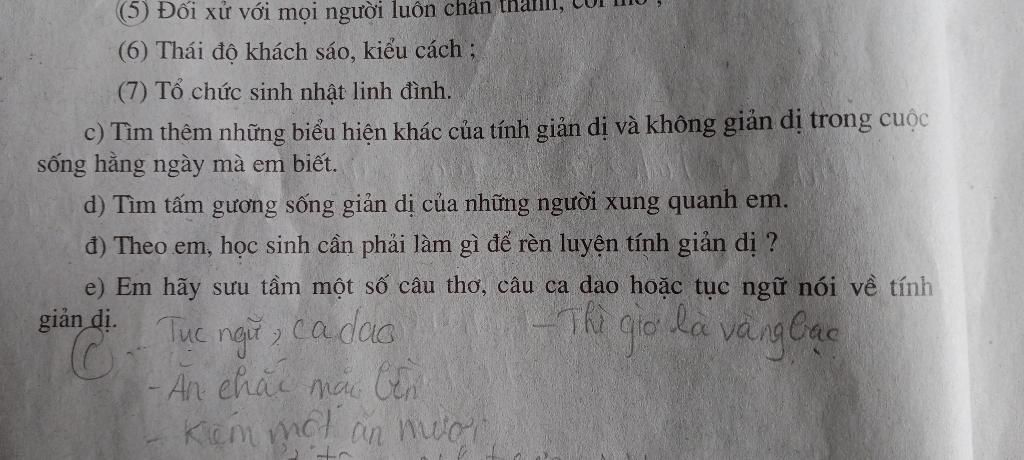 (5) Đối xử với mọi người luôn chân thành, cởi mở ;
(6) Thái độ khách sáo, kiểu cách ;
(7) Tổ chức sinh nhật linh đình.
c) Tìm thêm những biểu hiện khác của tính giản dị và không giản dị trong cuộc
sống hằng ngày mà em biết.
d) Tìm tấm gương sống giản dị của những người xung quanh em.
đ) Theo em, học sinh cần phải làm gì để rèn luyện tính giản dị ?
e) Em hãy sưu tầm một số câu thơ, câu ca dao hoặc tục ngữ nói về tính
giản dị.
Tục ngữ, ca dao
- Thì giờ là vàng bạc
- Ăn chắc mặc bền
- Kiếm một ăn mười